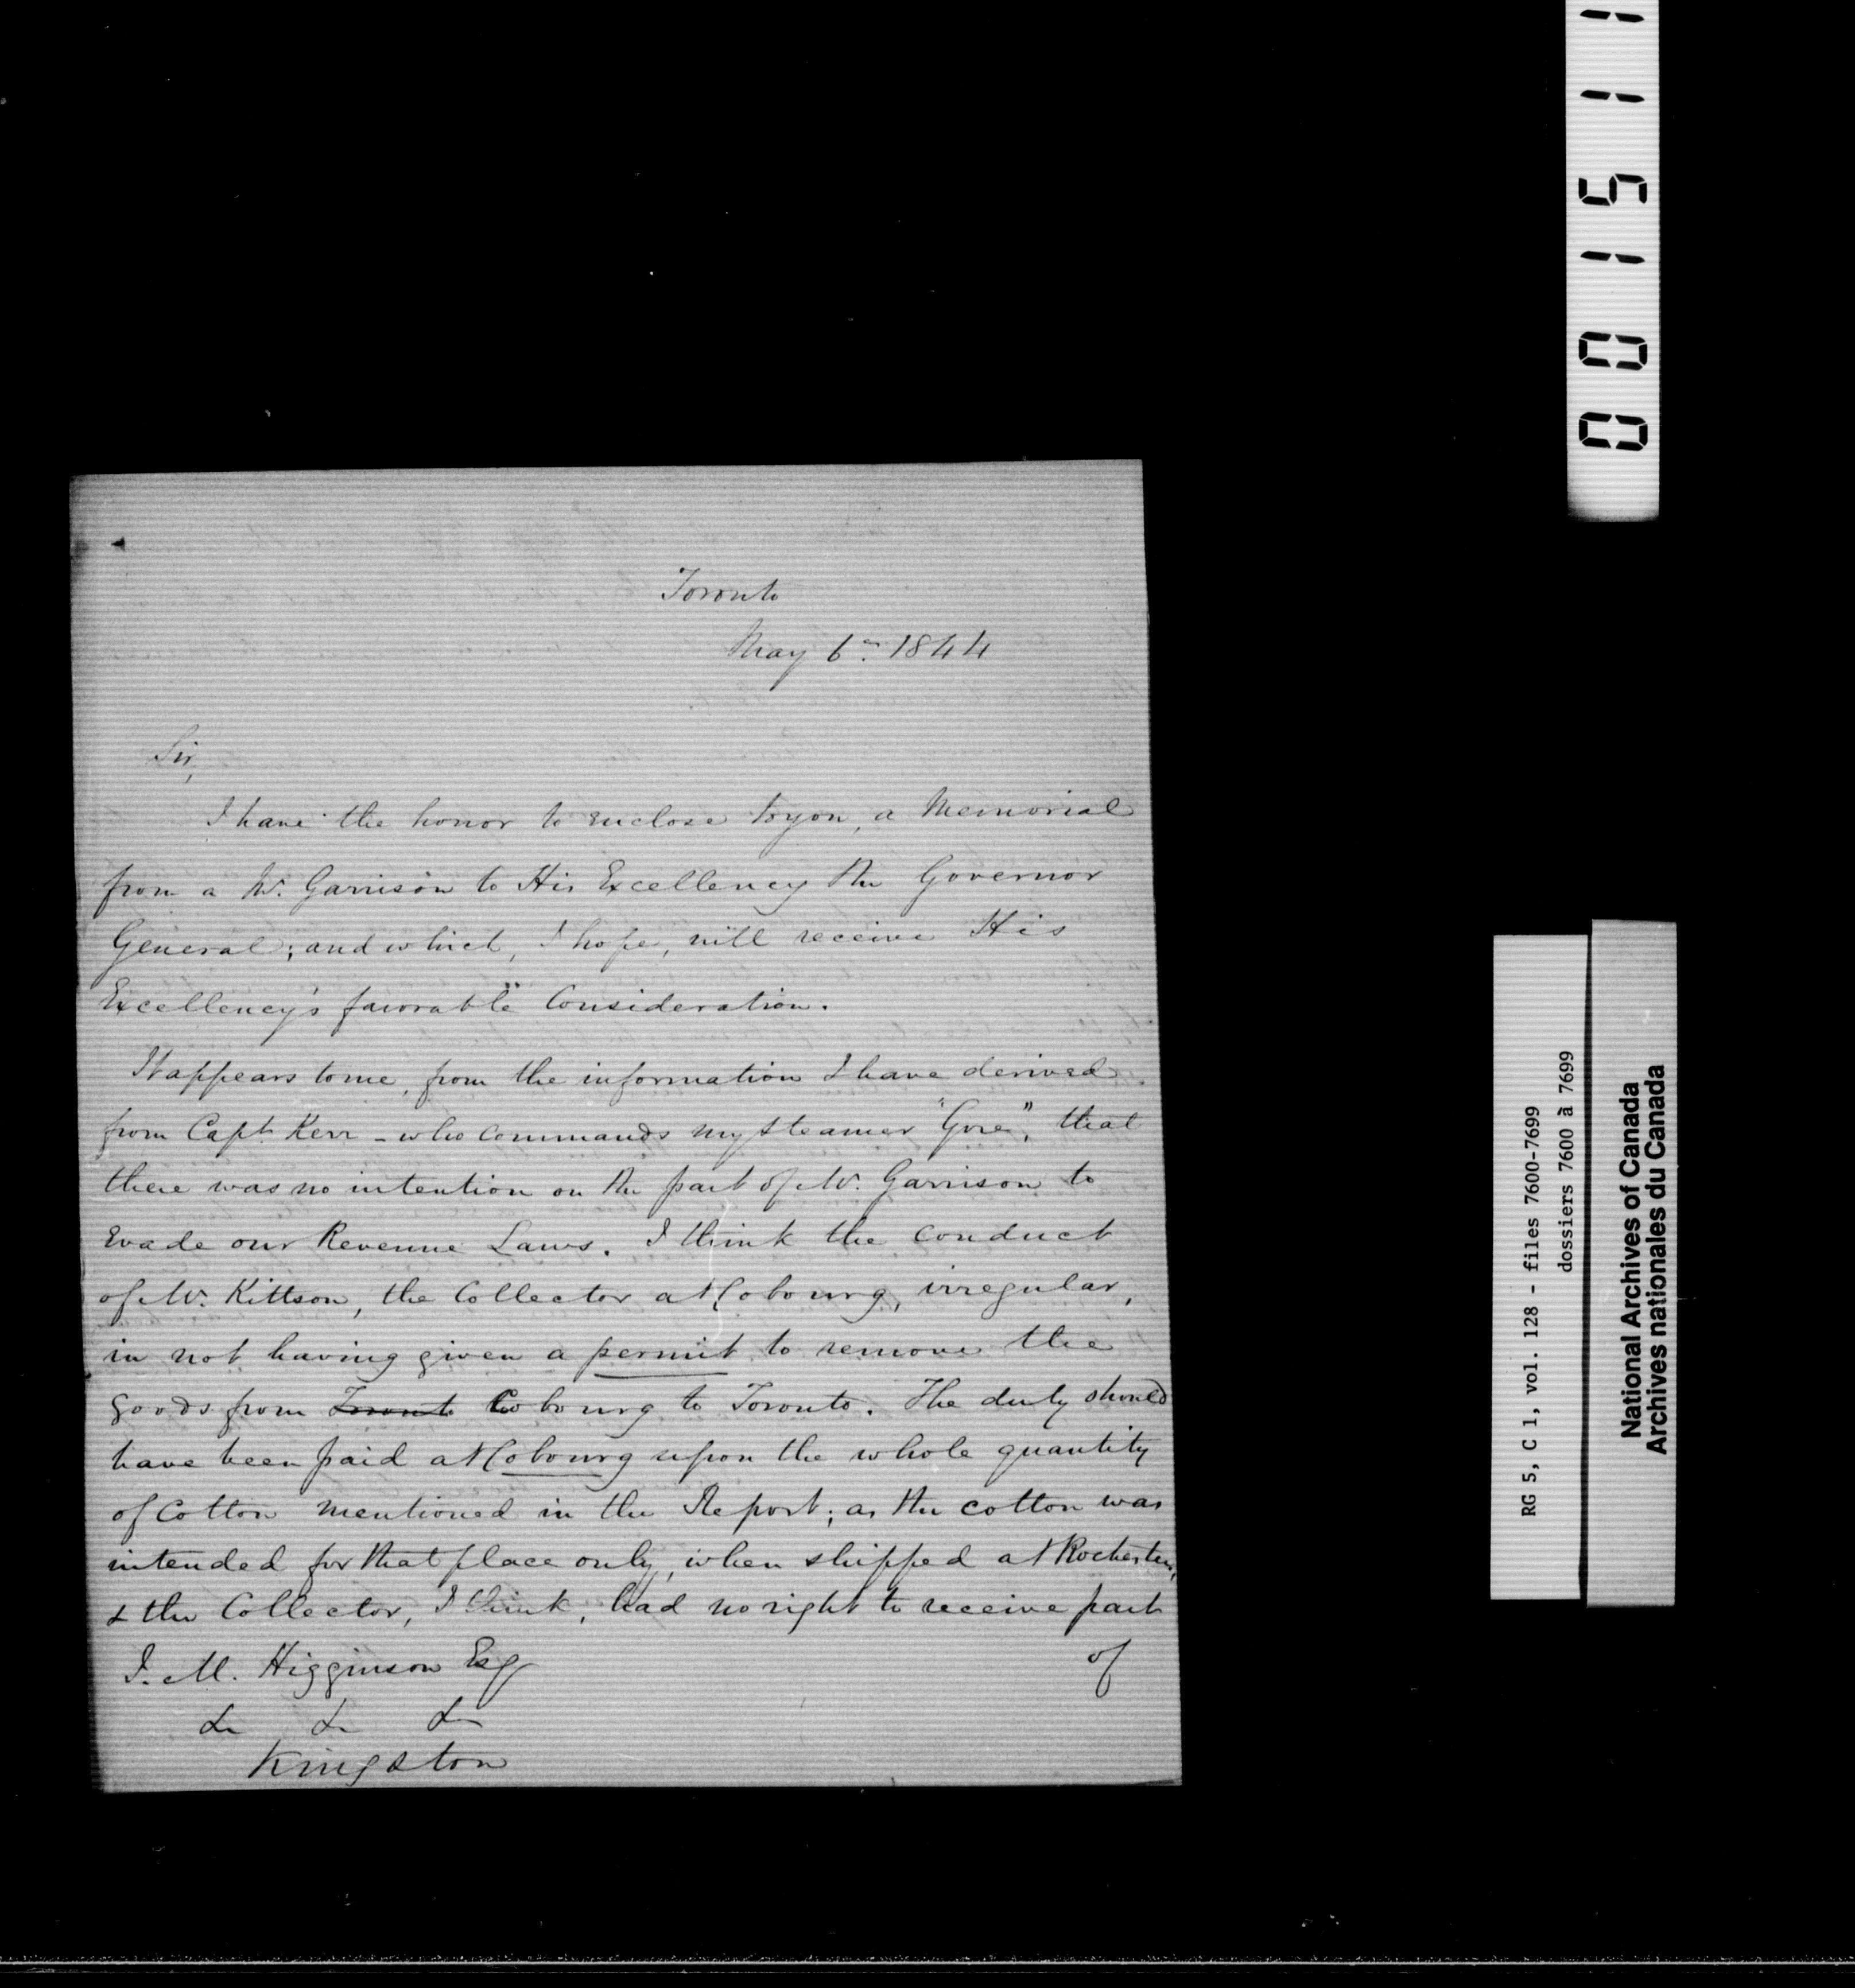 Toronto
May 6th 1844
Sir,
I have the honor to enclose to you, a Memorial
from a Mr. Garrison to His Excellency the Governor
General; and which, I hope, will receive His
Excellency's favorable Consideration.
It appears to me, from the information I have derived
from Capt. Kerr - who commands my steamer "Gore", that
there was no intention on the part of Mr. Garrison to
Evade our Revenue Laws. I think the conduct
of Mr. Kittson, the Collector at Cobourg, irregular,
in not having given a permit to remove the
goods from Toronto Cobourg to Toronto. The duty should
have been paid at Cobourg upon the whole quantity
of Cotton mentioned in the Report; as the cotton was
intended for that place only, when shipped at Rochester,
& the Collector, I think, had no right to receive part
of
J. M. Higginson Esq
&c &c &c
Kingston
001511
RG 5, C 1, vol. 128 - files 7600-7699
dossiers 7600 à 7699
National Archives of Canada
Archives nationales du Canada